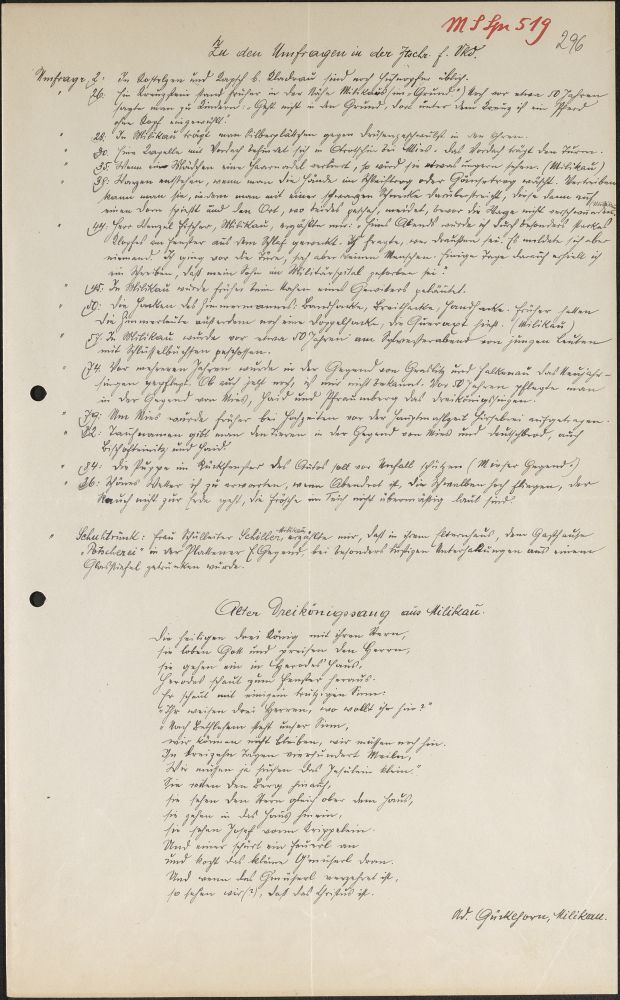 M S Sp 519
296
Zu den Umfragen in der Ztschr. f. Vkd.
Umfrage 2: In Kostelzen und Kapsch b. Kladrau sind noch üblich.
" 26. Ein Kreuzstein stand früher in der Nähe Milikaus im „Grund“. Noch vor etwa 50 Jahren
sagte man zu Kindern: „Geht nicht in den Grund, dort unter dem Kreuz ist ein Pferd
ohne Kopf eingewühlt.“
" 28. In Milikau trägt man Silberplättchen gegen Drüsengeschwulst in den Ohren.
" 30. Eine Kapelle mit Vordach befindet sich in Otrotschin bei Mies. Das Vordach trägt den Turm.
" 35. Wenn ein Mädchen eine Haarnadel verliert, so wird sie etwas ungern sehen. (Milikau)
" 39. Warzen entstehen, wenn man die Hände im oder wäscht. Vertreiben
kann man sie, indem man mit einer schwarzen Schnecke darüberstreicht, diese dann auf
einen Dorn spießt und den Ort, wo beides geschah, meidet, bevor die Warze nicht verschwunden.
" 44. Herr Wenzel Fischer, Milikau, erzählte mir: „Eines Abends wurde ich durch besonders starkes
Klopfen am Fenster aus dem Schlaf geweckt. Ich fragte, wer draußen sei. Es meldete sich aber
niemand. Ich ging vor die Türe, sah aber keinen Menschen. Einige Tage darauf erhielt ich
ein Schreiben, daß mein Sohn im Militärspital gestorben sei.“
" 45. In Milikau wurde früher beim Nahen eines Gewitters geläutet.
" 50. Die Hacken des Zimmermannes: Bandhacke, Breithacke, Handhacke. Früher hatten
die Zimmerleute außerdem noch eine Doppelhacke, die Queraxt hieß. (Milikau)
" 57. In Milikau wurde vor etwa 50 Jahren am Sylvesterabend von jungen Leuten
mit Schlüsselbüchsen geschossen.
" 74. Vor mehreren Jahren wurde in der Gegend von Graslitz und Falkenau das Neujahr-
singen gepflegt. Ob auch jetzt noch, ist mir nicht bekannt. Vor 50 Jahren pflegte man
in der Gegend von Mies, Haid und Pfraumberg das Dreikönigsingen.
" 79. Um Mies wurde früher bei Hochzeiten vor der Hauptmahlzeit Hirsebrei aufgetragen.
" 82. Taufnamen gibt man den Tieren in der Gegend von Mies und Deutschbrod, auch
Bischofteinitz und Haid.
" 84. Die Puppe im Rückfenster des Autos soll vor Unfall schützen (Mieser Gegend.)
" 86. Schönes Wetter ist zu erwarten, wenn Abendrot ist, die Schwalben hoch fliegen, der
Rauch nicht zur Erde geht, die Frösche im Teich nicht übermäßig laut sind.
" Schuhtrunk: Frau Schulleiter Schiller, Milikau, erzählte mir, daß in ihrem Elternhaus, dem Gasthause
in der Plattener Gegend, bei besonders lustigen Unterhaltungen aus einem
Glasstiefel getrunken wurde.
Alter Dreikönigssang aus Milikau.
Die heiligen drei König mit ihrem Stern,
sie loben Gott und preisen den Herrn,
sie gehen ein in Herodes Haus,
Herodes schaut zum Fenster heraus.
Er schaut mit einigem trutzigen Sinn:
„Ihr weisen drei Herren, wo wollt ihr hin?“
„Nach Bethlehem steht unser Sinn,
wir können nicht bleiben, wir müssen noch hin.
In dreizehn Tagen vierhundert Meilen,
Wir müssen ja suchen das Jesulein klein.“
Sie ritten den Berg hinauf,
sie sehen den Stern gleich ober dem Haus,
sie gehen in das Haus hinein,
sie sehen Josef vorm Krippelein.
Und einer schürt ein Feuerl an
und kocht das kleine Gmüserl dran.
Und wenn das Gmüserl verzehret ist,
so sehen wir(?), daß das Christus ist.
Ad. Gücklhorn, Milikau.